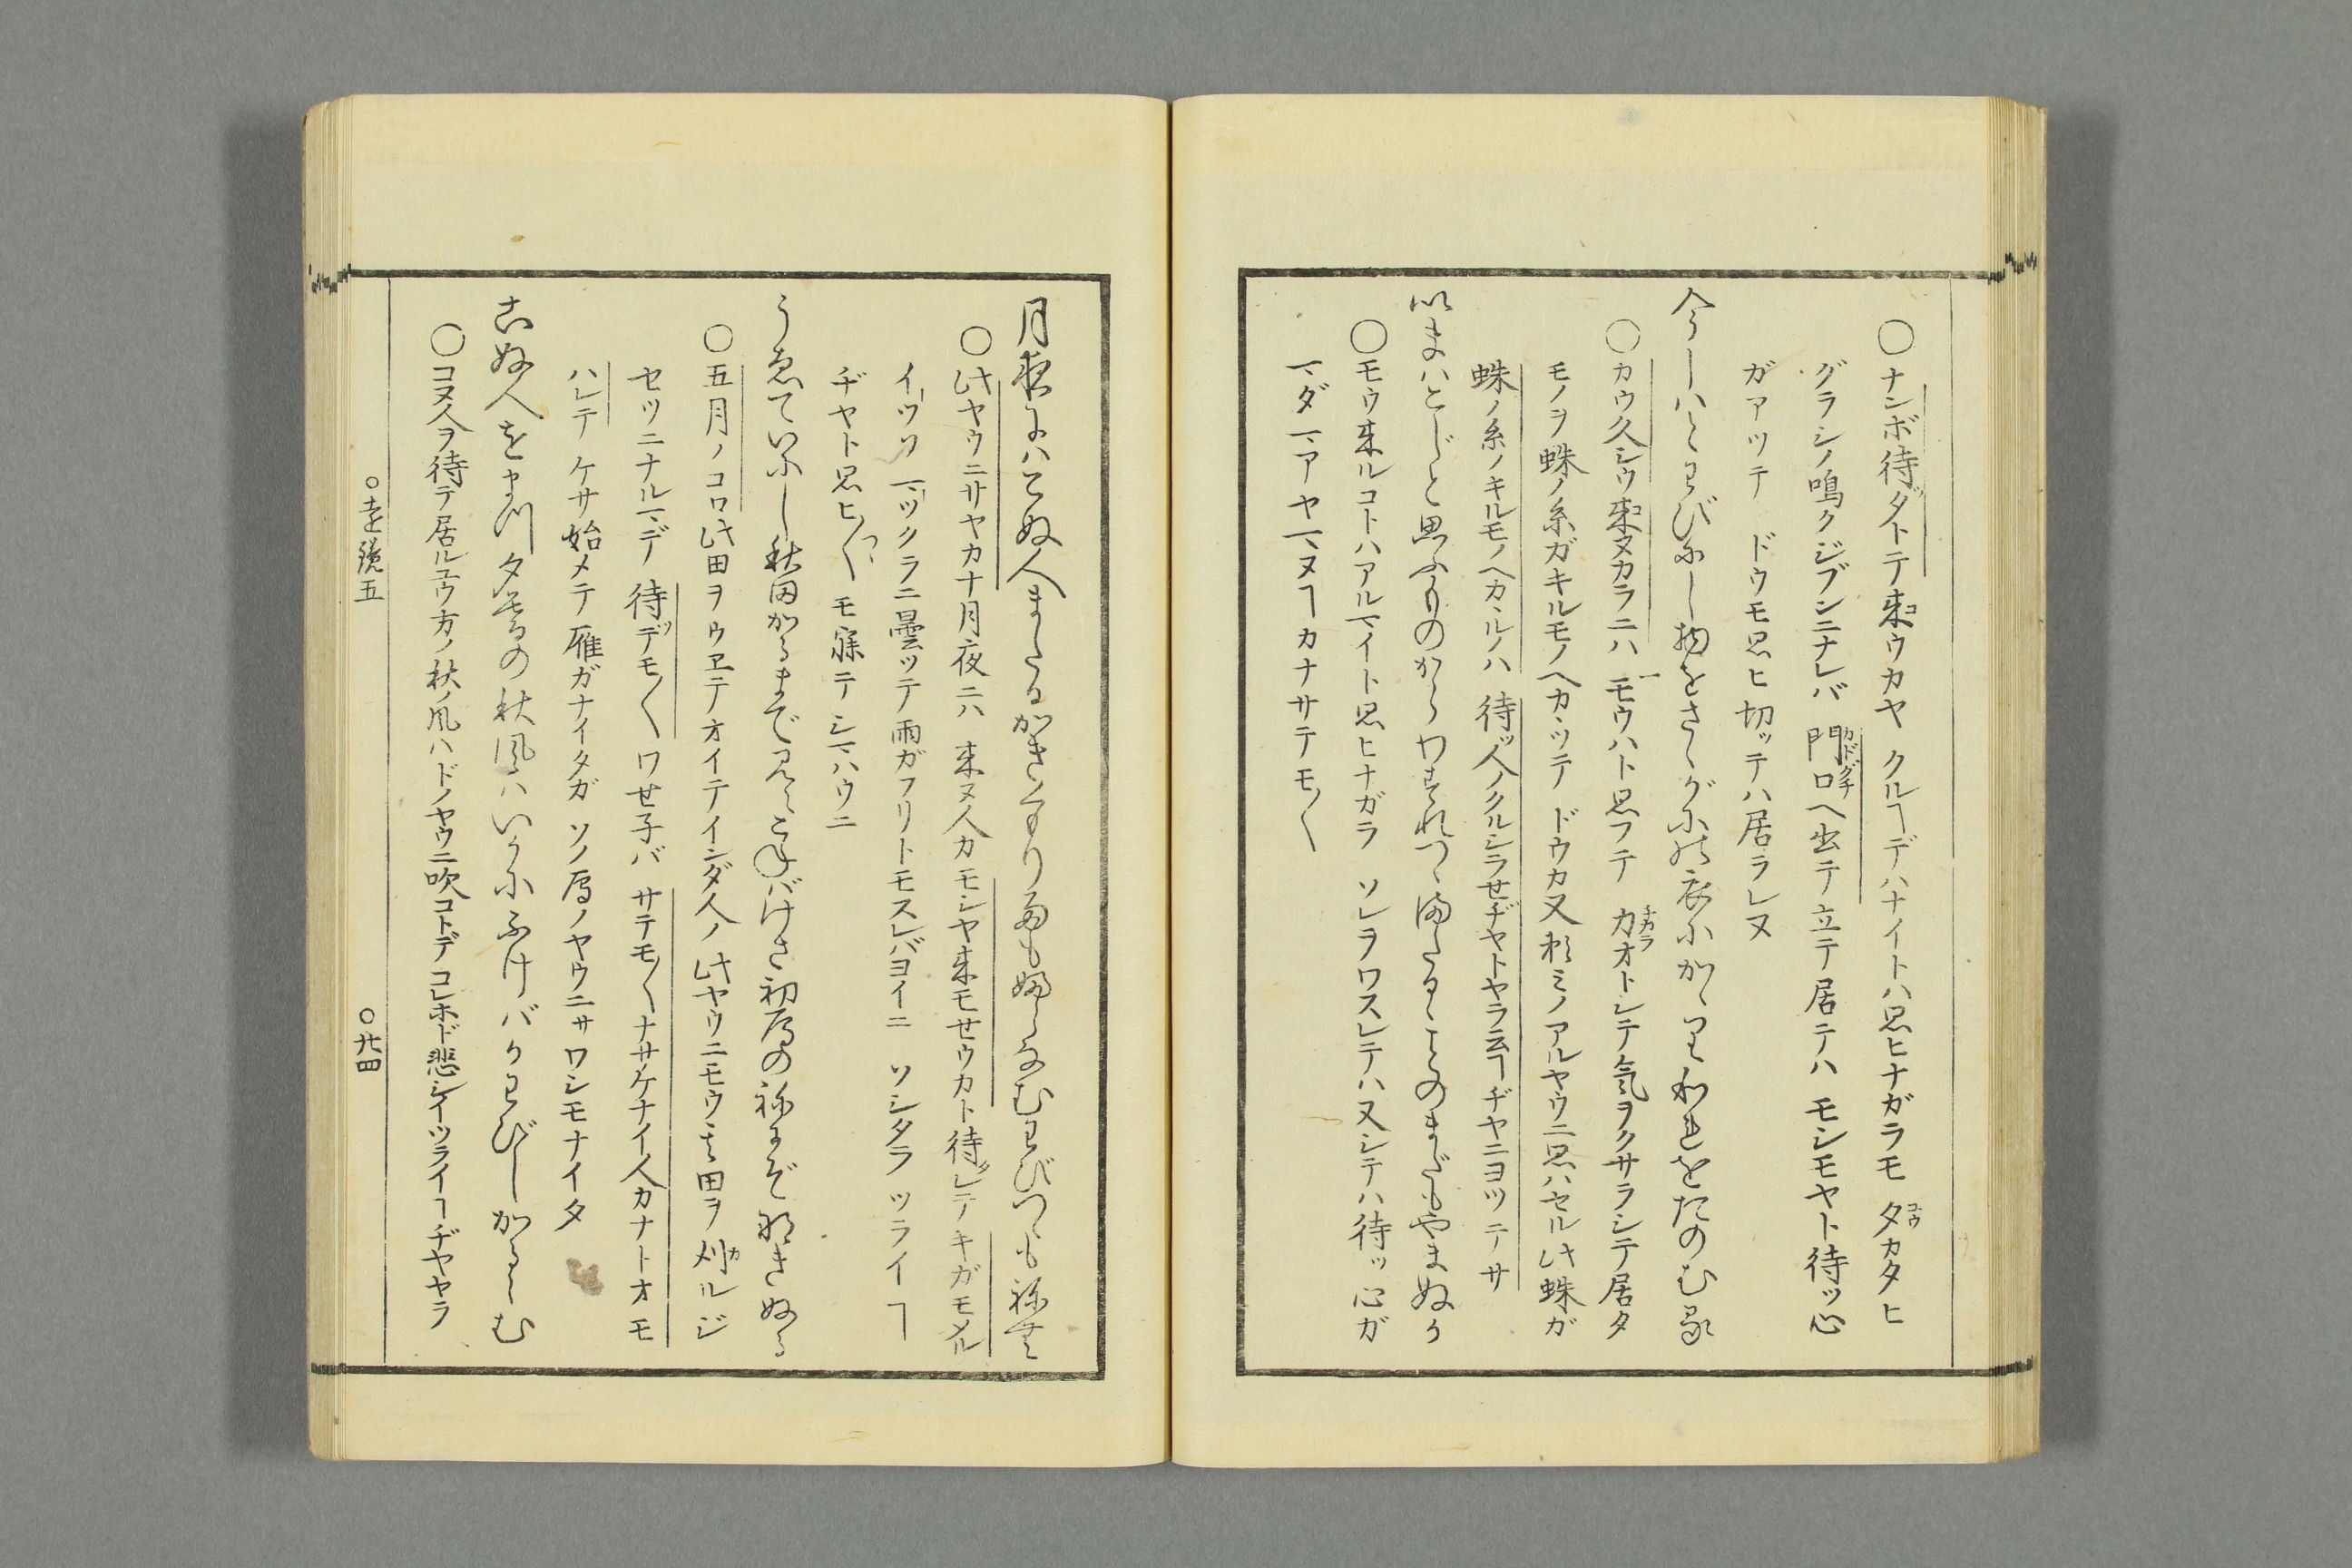 ○ナンボ待ダトテ来ウカヤ クルヿデハナイトハ思ヒナガラモ 夕カタヒ
グラシノ鳴クジブンニナレバ 門口ヘ出テ立テ居テハ モシモヤト待ッ心
ガアッテ ドウモ思ヒ切ッテハ居ラレヌ
今しハとわびにし物をさゝがにの衣にかゝりわれをたのむる
○カウ久シウ来ヌカラニハ モウハト思フテ 力オトレテ気ヲクサラシテ居タ
モノヲ蛛ノ糸ガキルモノヘカヽッテ ドウカ又頼ミノアルヤウニ思ハセル此蛛ガ
蛛ノ糸ノキルモノヘカヽルノハ 待ッ人ノクルシラせヂヤトヤラ云ヿヂヤニヨッテサ
いまハこじと思ふものからわすれつゝまたるゝことのまだもやまぬか
○モウ来ルコトハアルマイト思ヒナガラ ソレヲワスレテハ又シテハ待ッ心ガ
マダマアヤマヌヿカナサテモ〱
月夜にハこぬ人またるかきくもり雨もふらなむわびつゝもねむ
○此ヤウニサヤカナ月夜ニハ 来ヌ人カモシヤ来モせウカト待レテキガモメル
イッソ マックラニ曇ッテ雨ガフリトモスレバヨイニ ソシタラ ツライヿ
ヂヤト思ヒ〱モ寐テシマハウニ
うゑていにし秋田かるまで見えこねバけさ初鴈のねにぞなきぬる
○五月ノコロ此田ヲウヱテオイテインダ人ノ 此ヤウニモウ其田ヲ刈ルジ
セツニナルマデ 待デモ〱ワせ子バ サテモ〱ナサケナイ人カナトオモ
ハレテ ケサ始メテ雁ガナイタガ ソノ鴈ノヤウニサワシモナイタ
こぬ人をまつ夕ぐれの秋風ハいかにふけバかわびしかるらむ
○コヌ人ヲ待テ居ルユウ方ノ秋ノ風ハドノヤウニ吹コトデ コレホド悲シイツライヿヂヤヤラ
○遠鏡五 ○廿四